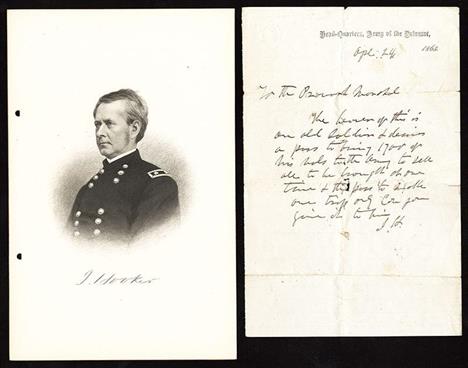 J. Hooker
Head-Quarters, Army of the Potomac,
Apl. 24 186
To the Provost Marshal
The bearer of this is
an old Soldier & desires
a pass to bring 1700 of
his to the Army to sell
all to be brought at one
time & the pass to
one trip only Can you
give it to him
J. H